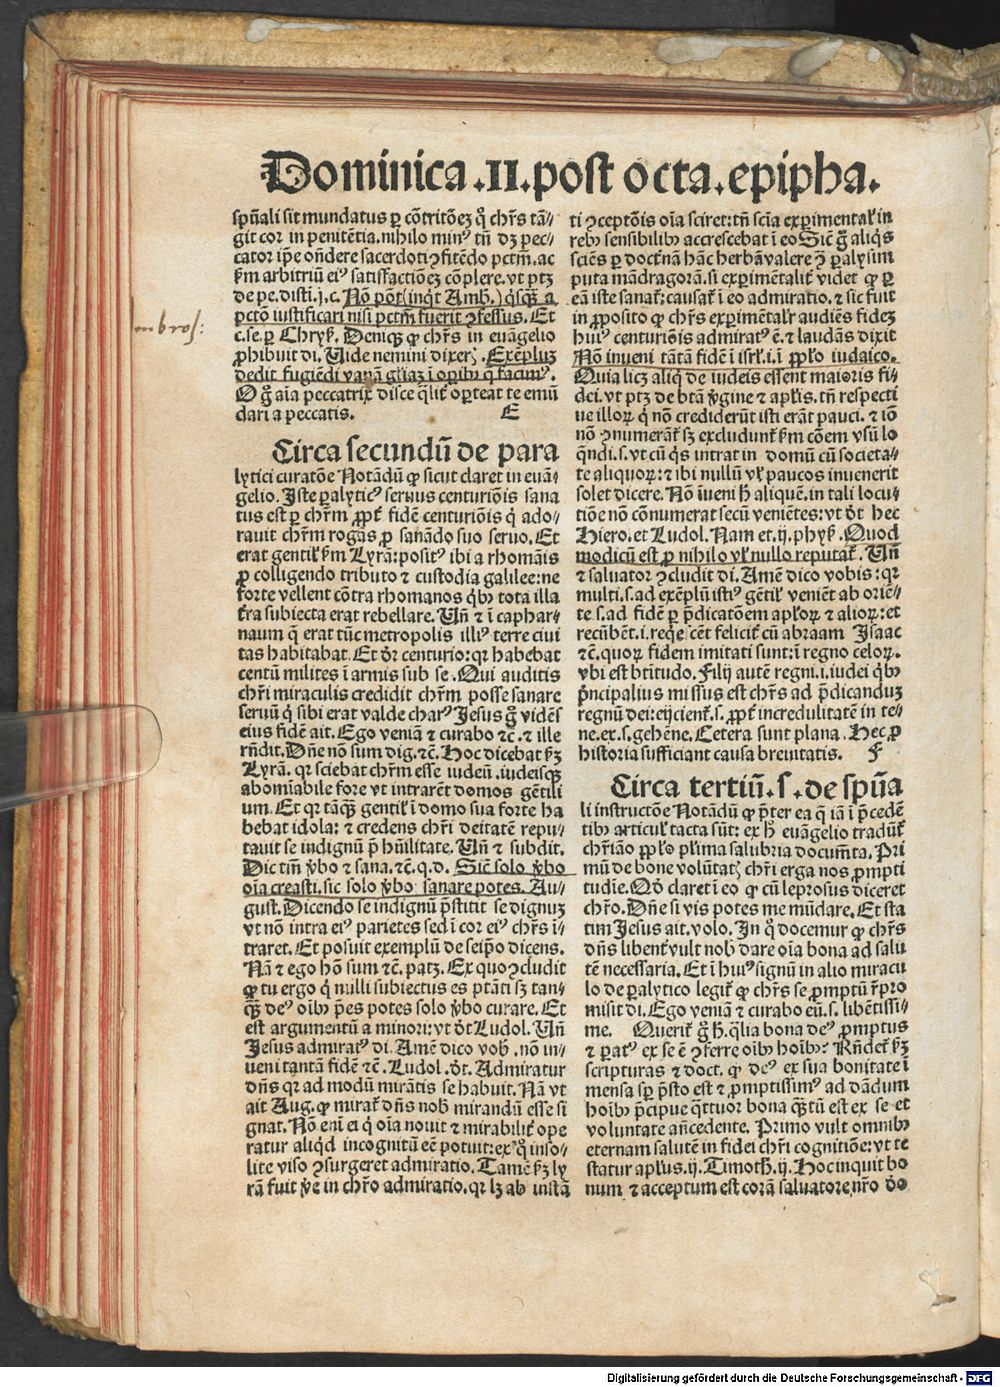 Dominica .II. post octa. epipha.
spūali sit mundatus ꝑ cōtritōeꝫ qͦ chr̄s tā⸗
git cor in penitētia. nihilo minꝰ tn̄ dꝫ pec⸗
cator ip̄e on̄dere sacerdoti ꝯfitēdo pctm̄. ac
ẜm arbitriū eiꝰ satisfactiōeꝫ cōplere. vt ptꝫ
de pe. disti. j. c. Nō pōt (inqt Amb.) qͥsqꝫ̄ a
pctō iustificari nisi pctm̄ fuerit ꝯfessus. Et
c. se. ꝑ Chryẜ. Deniqꝫ ꝙ chr̄s in euāgelio
ꝓhibuit di. Uide nemini dixerꝭ. Exēpluꝫ
dedit fugiēdi vanā gl̄iaꝫ ī oꝑibꝰ q̄ facimꝰ.
O gͦ aīa peccatrix disce qͣlit̄ oꝑteat te emū
dari a peccatis. E
Circa secundū de para
lytici curatōe Notādū ꝙ sicut claret in euā⸗
gelio. Iste ꝑalyticꝰ seruus centuriōis sana
tus est ꝑ chr̄m ꝓpt̄ fidē centuriōis qͥ ado⸗
rauit chr̄m rogās ꝓ sanādo suo seruo. Et
erat gentil̄ ẜm Lyrā: positꝰ ibi a rhomāis
ꝓ colligendo tributo ⁊ custodia galilee: ne
forte vellent cōtra rhomanos qͥbꝰ tota illa
t̄ra subiecta erat rebellare. Un̄ ⁊ ī caphar⸗
naum q̄ erat tūc metropolis illiꝰ terre ciui
tas habitabat. Et d̄r centurio: qꝛ habebat
centū milites ī armis sub se. Qui auditis
chr̄i miraculis credidit chr̄m posse sanare
seruū qͥ sibi erat valde charꝰ Jesus gͦ vidēs
eius fidē ait. Ego veniā ⁊ curabo ⁊c̄. ⁊ ille
rn̄dit. Dn̄e nō sum dig. ⁊c̄. Hoc dicebat ẜꝫ
Lyrā. qꝛ sciebat chr̄m esse iudeū. iudeisqꝫ
abomiabile fore vt intrarēt domos gētili
um. Et qꝛ tāqꝫ̄ gentil̄ ī domo sua forte ha
bebat idola: ⁊ credens chr̄i deitatē repu⸗
tauit se indignū p̄ hūilitate. Un̄ ⁊ subdit.
Dic tm̄ v̄bo ⁊ sana. ⁊c̄. q. d. Sic̄ solo v̄bo
oīa creasti. sic solo v̄bo sanare potes. Au⸗
gust. Dicendo se indignū p̄stitit se dignuꝫ
vt nō intra eiꝰ parietes sed ī cor eiꝰ chr̄s ī⸗
traret. Et posuit exemplū de seip̄o dicens.
Nā ⁊ ego hō sum ⁊c̄. patꝫ. Ex quo ꝯcludit
ꝙ tu ergo qͥ nulli subiectus es ptāti sꝫ tan⸗
qꝫ̄ deꝰ oībꝰ p̄es potes solo v̄bo curare. Et
est argumentū a minori: vt d̄t Ludol. Un̄
Jesus admiratꝰ di. Amē dico vob̄. nō in⸗
ueni tantā fidē ⁊c̄. Ludol. d̄t. Admiratur
dn̄s qꝛ ad modū mirātis se habuit. Nā vt
ait Aug. ꝙ mirat̄ dn̄s nob̄ mirandū esse si
gnat. Nō eni ei qͥ oīa nouit ⁊ mirabilit̄ ope
ratur aliqͥd incognitū eē potuit: ex qͦ inso⸗
lite viso ꝯsurgeret admiratio. Tamē ẜꝫ ly
rā fuit v̄e in chr̄o admiratio. qꝛ lꝫ ab instā
ti ꝯceptōis oīa sciret: tn̄ sciā experimental̄ in
rebꝰ sensibilibꝰ accrescebat ī eo Sic̄ gͦ aliqͥs
sciēs ꝑ doctͥnā hāc herbā valere ꝯ̄ ꝑalysim
puta mādragorā. si exꝑimētalit̄ videt ꝙ ꝑ
eā iste sanat̄: causat̄ ī eo admiratio. ⁊ sic fuit
in ꝓposito ꝙ chr̄s exꝑimētalr̄ audiēs fideꝫ
huiꝰ centuriōis admiratꝰ ē. ⁊ laudās dixit
Nō inueni tātā fidē ī isrl̄. i. ī ꝓpl̄o iudaico.
Quia licꝫ aliqͥ de iudeis essent maioris fi⸗
dei. vt ptꝫ de btā v̄gine ⁊ apl̄is. tn̄ respecti
ue illoꝝ qͥ nō crediderūt isti erāt pauci. ⁊ iō
nō ꝯnumerāt̄ sꝫ excludunt̄ ẜm cōem vsū lo
qͣndi. s. vt cū qͥs intrat in domū cū societa⸗
te aliquoꝝ: ⁊ ibi nullū vl̄ paucos inuenerit
solet dicere. Nō īueni h̄ aliquē. in tali locu⸗
tiōe nō cōnumerat secū veniētes: vt d̄t hec
Hiero. et Ludol. Nam et. ij. phyẜ. Quod
modicū est ꝑ nihilo vl̄ nullo reputat̄. Un̄
⁊ saluator ꝯcludit di. Amē dico vobis: qꝛ
multi. s. ad exēplū istiꝰ gētil̄ veniēt ab oriē⸗
te. s. ad fidē ꝑ p̄dicatōem apl̄oꝝ ⁊ alioꝝ: et
recūbēt. i. reqͥescēt felicit̄ cū abraam Isaac
⁊c̄. quoꝝ fidem imitati sunt: ī regno celoꝝ.
vbi est btitudo. Filij autē regni. i. iudei qͥbꝰ
pͥncipalius missus est chr̄s ad p̄dicanduꝫ
regnū dei: eijcient̄. s. ꝓpt̄ incredulitatē in te⸗
ne. ex. s. gehēne. Cetera sunt plana. Hec ꝓ
historia sufficiant causa breuitatis. F
Circa tertiū. s. de spūa
li instructōe Notādū ꝙ p̄ter ea q̄ iā ī p̄cedē
tibꝰ articul̄ tacta sūt: ex h̄ euāgelio tradūt̄
chr̄iāo ꝓpl̄o pl̄ima salubria docum̄ta. Pri
mū de bone volūtatꝭ chr̄i erga nos ꝓmpti
tudie. Qd̄ claret ī eo ꝙ cū leprosus diceret
chr̄o. Dn̄e si vis potes me mūdare. Et sta
tim Jesus ait. volo. In qͦ docemur ꝙ chr̄s
dn̄s libent̄ vult nob̄ dare oīa bona ad salu
tē necessaria. Et ī huiꝰ signū in alio miracu
lo de ꝑalytico legit̄ ꝙ chr̄s se ꝓmptū r̄pro
misit di. Ego veniā ⁊ curabo eū. s. libētissi⸗
me. Querit̄ gͦ h̄. qͣlia bona deꝰ ꝓmptus
⁊ ꝑatꝰ ex se ē ꝯferre oībꝰ hoībꝰ? Rn̄det̄ ẜꝫ
scripturas ⁊ doct. ꝙ deꝰ ex sua bonitate ī
mensa sꝑ p̄sto est ⁊ ꝓmptissimꝰ ad dādum
hoībꝰ p̄cipue qͣttuor bona qꝫ̄tū est ex se et
voluntate an̄cedente. Primo vult omnibꝰ
eternam salutē in fidei chr̄i cognitiōe: vt te
statur apl̄us. ij. Timoth̄. ij. Hoc inquit bo
num ⁊ acceptum est corā saluatore nr̄o do
mbros:
Digitalisierung gefördert durch die Deutsche Forschungsgemeinschaft - DFG